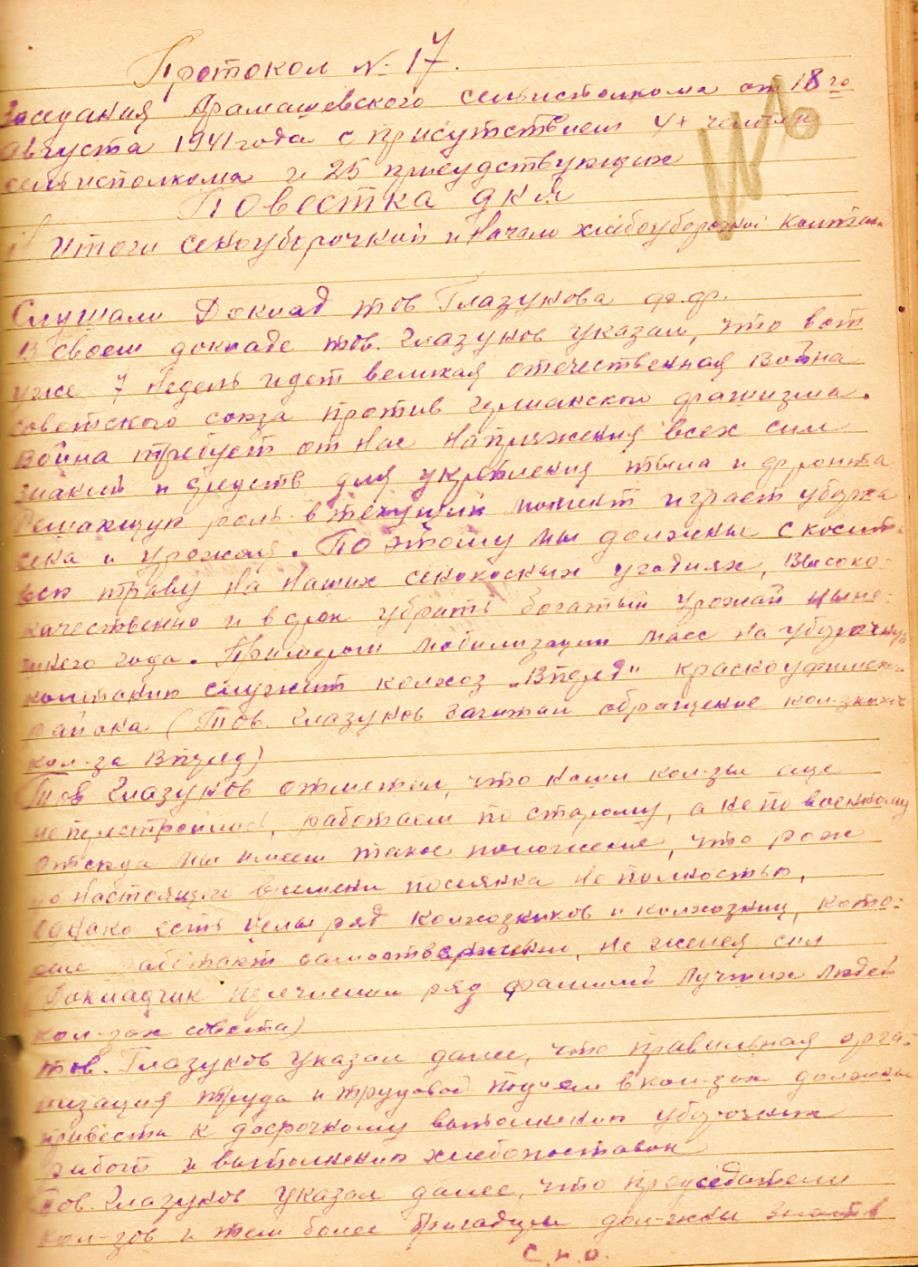 Протокол № 17.
Заседания Арамашевского сельисполкома от 18го
августа 1941 года с присутствием 4х человек
сельисполкома и 25 присудствующих
Повестка дня
1) Итоги сеноуборочной и начало хлебоуборочной
Слушали Доклад тов Глазукова
В своем докладе тов. Глазуков указал, что вот
уже 7 недель идет великая отечественная война
советского союза против германского фашизма.
Война требует от нас напряжения всех сил
знаний и средств для укрепления тыла и фронта
Решающую роль в текущий момент играет уборка
сена и урожая. По этому мы должны скосить
всю траву на наших сенокосных угодиях, высоко-
качественно и в срок убрать богатый урожай ныне-
шнего года. Примером мобилизации масс на уборочную
компанию служит колхоз „Вперед" красноуфимского
района (Тов. Глазуков зачитал обращение
кол-за Вперед)
Тов Глазуков отметил, что наши кол-зы еще
не перестроились, работаем по старому, а не по военному
отсюда мы имеем такое положение, что рожь
до настоящего времени посеяна не полностью,
однако есть целый ряд колхозников и колхозниц, кото-
рые работают самоотверженно, не жалея сил
(Докладчик перечислил ряд фамилий лучших людей
кол-зах совета)
тов. Глазуков указал далее, что правильная орга-
низация труда и трудовой подъем в кол-зах должны
привести к досрочному выполнению уборочных
работ и выполнению хлебопоставок
Тов. Глазуков указал далее, что председатели
кол-зов и тем более бригадиры дол-жны знать
с.н.о.